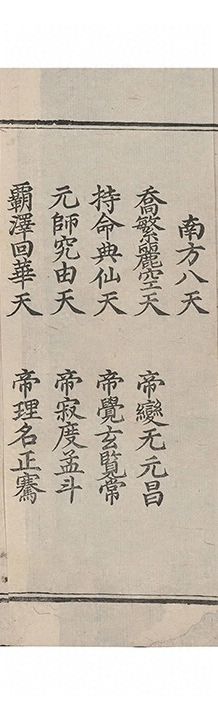 南方八天
喬繁麗空天　帝變无元昌
持命典仙天　帝覺玄覽常
元師究由天　帝寂度孟斗
霸澤回華天　帝理名正騫